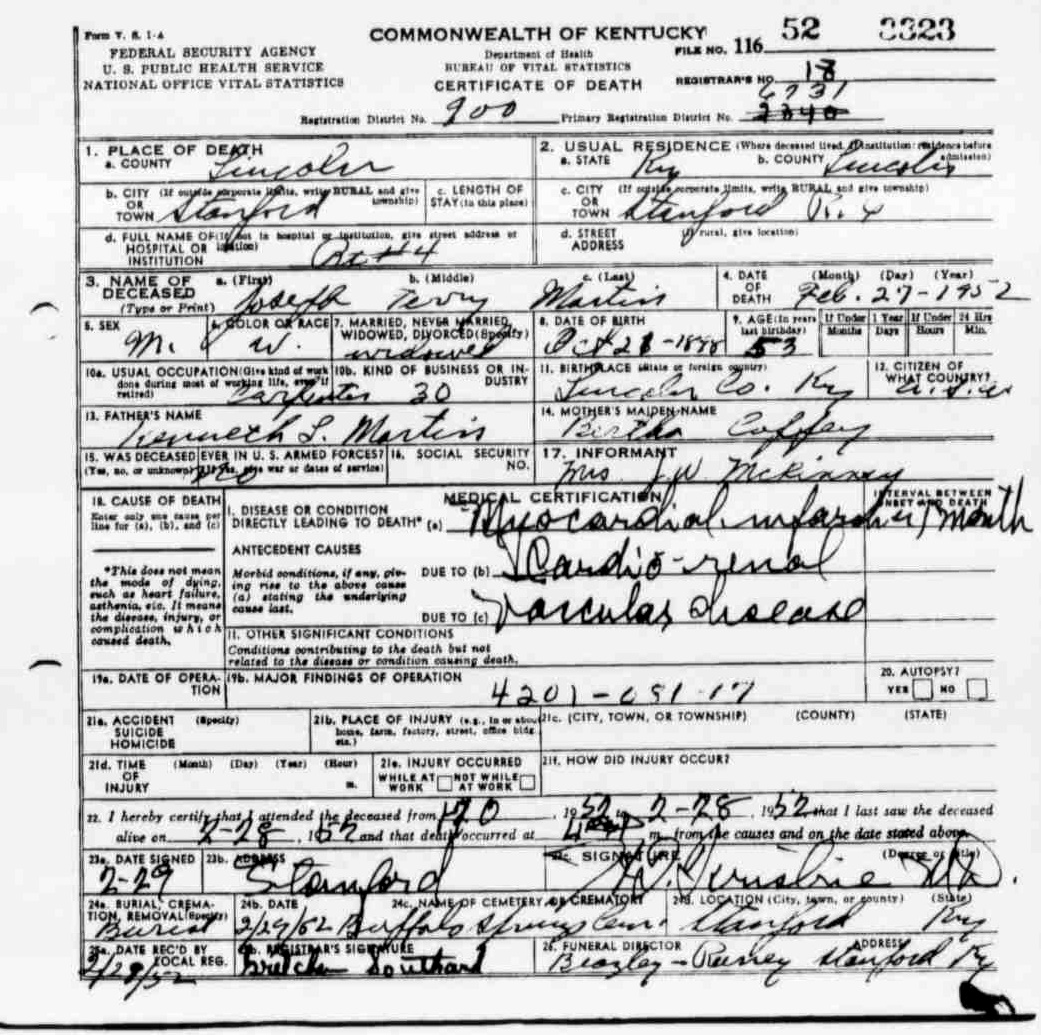 Form V. S. 1-A
COMMONWEALTH OF KENTUCKY
FILE NO. 116 52 3323
FEDERAL SECURITY AGENCY
U. S. PUBLIC HEALTH SERVICE
NATIONAL OFFICE VITAL STATISTICS
Department of Health
BUREAU OF VITAL STATISTICS
CERTIFICATE OF DEATH
REGISTRAR'S NO. 18
6731
Registration District No. 900 Primary Registration District No. 2340
1. PLACE OF DEATH
a. COUNTY Lincoln
2. USUAL RESIDENCE (Where deceased lived. If institution: residence before admission)
a. STATE Ky b. COUNTY Lincoln
b. CITY (If outside corporate limits, write RURAL and give township)
OR
TOWN Stanford
c. LENGTH OF STAY (in this place)
c. CITY (If outside corporate limits, write RURAL and give township)
OR
TOWN Stanford R. 4
d. FULL NAME OF (If not in hospital or institution, give street address or location)
HOSPITAL OR
INSTITUTION Rt #4
d. STREET ADDRESS (If rural, give location)
3. NAME OF DECEASED
(Type or Print)
a. (First) Joseph
b. (Middle) Terry
c. (Last) Martin
4. DATE OF DEATH (Month) (Day) (Year)
Feb. 27-1952
5. SEX
M.
6. COLOR OR RACE
W.
7. MARRIED, NEVER MARRIED, WIDOWED, DIVORCED (Specify)
widowed
8. DATE OF BIRTH
Oct 28-1898
9. AGE (In years last birthday)
53
If Under 1 Year
Months Days
If Under 24 Hrs
Hours Min.
10a. USUAL OCCUPATION (Give kind of work done during most of working life, even if retired)
Carpenter 30
10b. KIND OF BUSINESS OR INDUSTRY
11. BIRTHPLACE (State or foreign country)
Lincoln Co. Ky
12. CITIZEN OF WHAT COUNTRY?
U.S.A
13. FATHER'S NAME
Kenneth L. Martin
14. MOTHER'S MAIDEN NAME
Bertha Coffey
15. WAS DECEASED EVER IN U. S. ARMED FORCES?
(Yes, no, or unknown) (If yes, give war or dates of service)
no
16. SOCIAL SECURITY NO.
17. INFORMANT
Mrs. J.W. McKinney
18. CAUSE OF DEATH
Enter only one cause per line for (a), (b), and (c)
*This does not mean the mode of dying, such as heart failure, asthenia, etc. It means the disease, injury, or complication which caused death.
MEDICAL CERTIFICATION
INTERVAL BETWEEN ONSET AND DEATH
I. DISEASE OR CONDITION DIRECTLY LEADING TO DEATH* (a) Myocardial infarction 1 month
ANTECEDENT CAUSES
Morbid conditions, if any, giving rise to the above cause (a) stating the underlying cause last.
DUE TO (b) Cardio-renal
DUE TO (c) Vascular disease
II. OTHER SIGNIFICANT CONDITIONS
Conditions contributing to the death but not related to the disease or condition causing death.
19a. DATE OF OPERATION
19b. MAJOR FINDINGS OF OPERATION
4201-051-17
20. AUTOPSY?
YES NO
21a. ACCIDENT (Specify)
SUICIDE
HOMICIDE
21b. PLACE OF INJURY (e.g., in or about home, farm, factory, street, office bldg. etc.)
21c. (CITY, TOWN, OR TOWNSHIP) (COUNTY) (STATE)
21d. TIME OF INJURY (Month) (Day) (Year) (Hour) m.
21e. INJURY OCCURRED
WHILE AT WORK NOT WHILE AT WORK
21f. HOW DID INJURY OCCUR?
22. I hereby certify that I attended the deceased from 1-20, 1952 to 2-28, 1952 that I last saw the deceased
alive on 2-28, 1952 and that death occurred at m., from the causes and on the date stated above.
23a. DATE SIGNED
2-29
23b. ADDRESS
Stanford
23c. SIGNATURE (Degree or title)
MD.
24a. BURIAL, CREMATION, REMOVAL (Specify)
Burial
24b. DATE
2/29/52
24c. NAME OF CEMETERY OR CREMATORY
Buffalo Springs Cem.
24d. LOCATION (City, town, or county) (State)
Stanford Ky
25a. DATE REC'D BY LOCAL REG.
2/29/52
25b. REGISTRAR'S SIGNATURE
Gretchen Southard
26. FUNERAL DIRECTOR ADDRESS
Beazley-Raney Stanford Ky